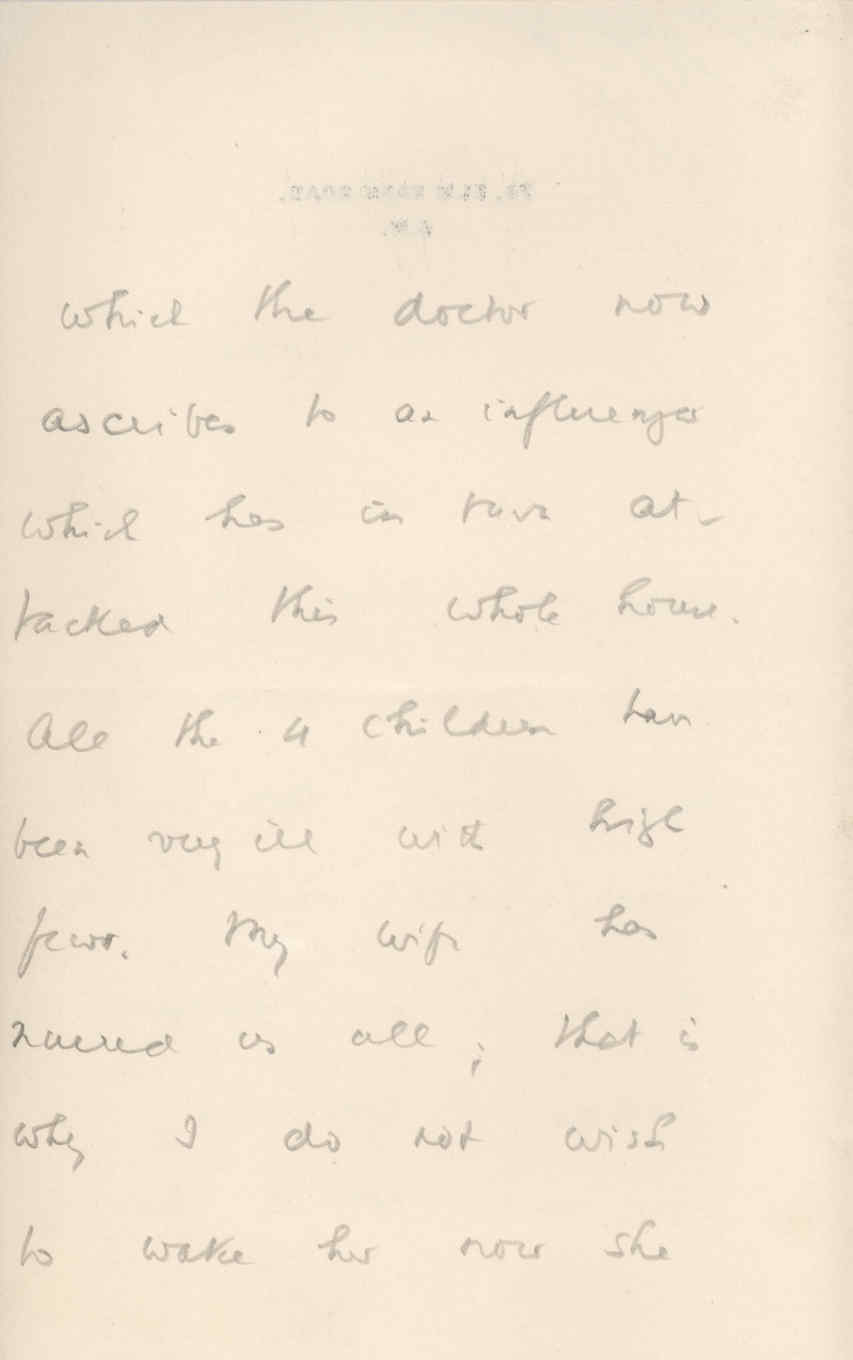 which the doctor now
ascribes to an influenza
which has in turn at-
tacked this whole house.
All the 4 children have
been very ill with high
fever. My wife has
nursed us all; that is
why I do not wish
to wake her now she